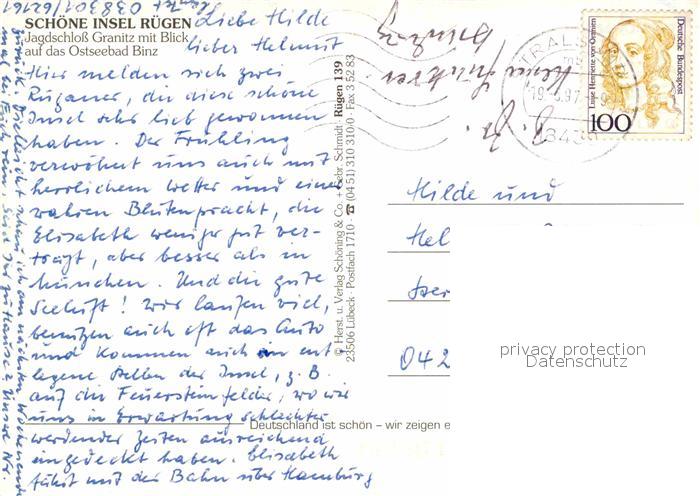 SCHÖNE INSEL RÜGEN
Jagdschloß Granitz mit Blick
auf das Ostseebad Binz
038301/62961
Liebe Hilde
lieber Helmut
Hier melden sich zwei
Rüganer, die diese schöne
Insel sehr lieb gewonnen
haben. Der Frühling
verwöhnt uns auch mit
herrlichem Wetter und einer
wahren Blütenpracht, die
Elisabeth weniger gut ver-
trägt, aber besser als in
München. Und die gute
Seeluft! Wir laufen viel,
benutzen auch oft das Auto
und kommen auch in ent
legene Stellen der Insel, z.B.
auf die Feuersteinfelder, wo wir
uns in Erwartung schlechter
werdender Zeiten ausreichend
eingedeckt haben. Elisabeth
fährt mit der Bahn über Hamburg
zurück. Vielleicht schau ich am nächsten Wochenende
mal bei Euch rein. Seid Ihr zu Hause? Unsere Nr.
© Herst. u. Verlag Schöning & Co. + Gebr. Schmidt · Rügen 139
23506 Lübeck · Postfach 1710 · ☎ (04 51) 310 310/0 · Fax 3 52 83
Deutschland ist schön – wir zeigen e
STRALSUND
97
Deutsche Bundespost
Luise Henriette von Oranien
100
Hilde und
Hel
042
privacy protection
Datenschutz